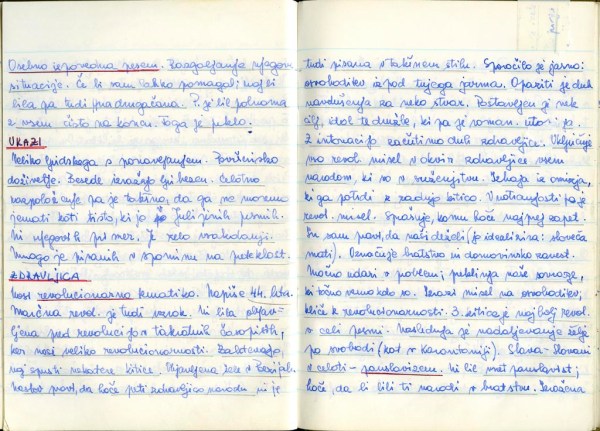 Osebno izpovedna pesem. Razgaljanje njegove
situacije. Če bi vam lahko pomagali naj bi
bila pa tudi
z vsem čisto na koncu. Tega je
UKAZI
Veliko ljudskega s ponavljanjem. Površinsko
doživetje. Besede izražajo ljubezen. Celotno
razpoloženje pa je takšno, da ga ne moremo
jemati kot tisto, ki jo po Julijinih pesmih.
ni njegovih
mnogo je pisanih v spominu na preteklost.
ZDRAVLJICA
Nosi revolucionarno tematiko. Napiše 44. leta.
Marčna revol. je tudi vzrok. Ni bila objav-
ljena pred revolucijo v takratnih časopisih,
ker nosi veliko revolucionarnosti. Zahtevajo,
naj spusti nekatere kitice. Objavljena šele v
naslov pove, da hoče peti zdravljico narodu, ni je
tudi pisana v takšnem stilu. Sporočilo je jasno:
osvoboditev izpod tujega jarma. Opaziti je duh
navdušenja za neko stvar. Postavljen je nek
cilj, ideal te družbe, ki pa je roman. utopija.
Z intonacijo začutimo duh zdravljice. Vključuje
vso revol. misel v okvir zdravljice vsem
narodom, ki so v suženjstvu. Izhaja iz omizja,
ki ga potrdi z zadnjo kitico. V notranjosti pa je
revol. misel. Sprašuje, komu hoče najprej zapet.
In sam pove, da naši deželi (jo idealizira: sloveča
mati). Poroča bratstvo in domovinsko zavest.
Močno udari s pozivom; naše sovrage,
ki točno vemo kdo so. Izrazi misel na osvoboditev;
kliče k revolucionarnosti. 3. kitica je najbolj revol.
v celi pesmi. Nasleduje še nadaljevanje želj
po svobodi (kot v Karantaniji). Slava - Slovani
v celoti - panslavizem. Ni bil vnet panslavist;
hoče, da bi bili ti narodi v bratstvu. Izražena